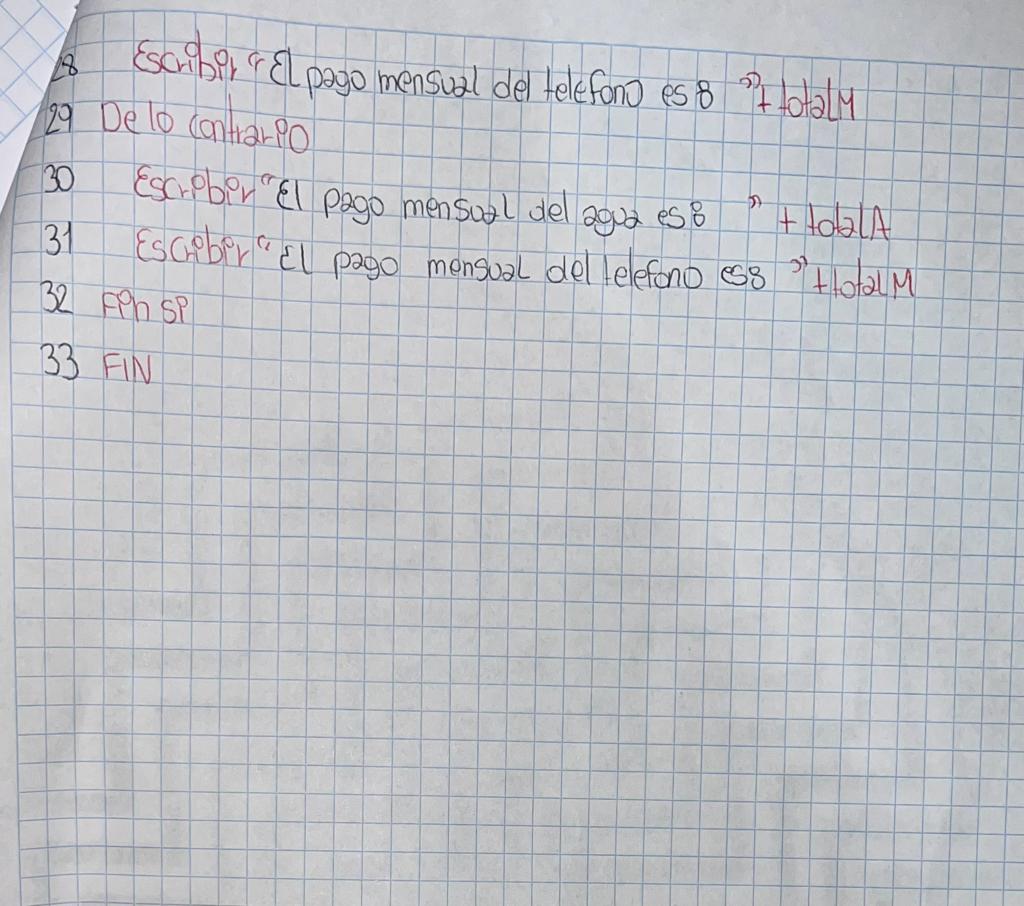 28 Escribir "El pago mensual del telefono es: " + totalM
29 De lo contrario
30 Escribir "El pago mensual del agua es: " + totalA
31 Escribir "El pago mensual del telefono es: " + totalM
32 Fin si
33 FIN